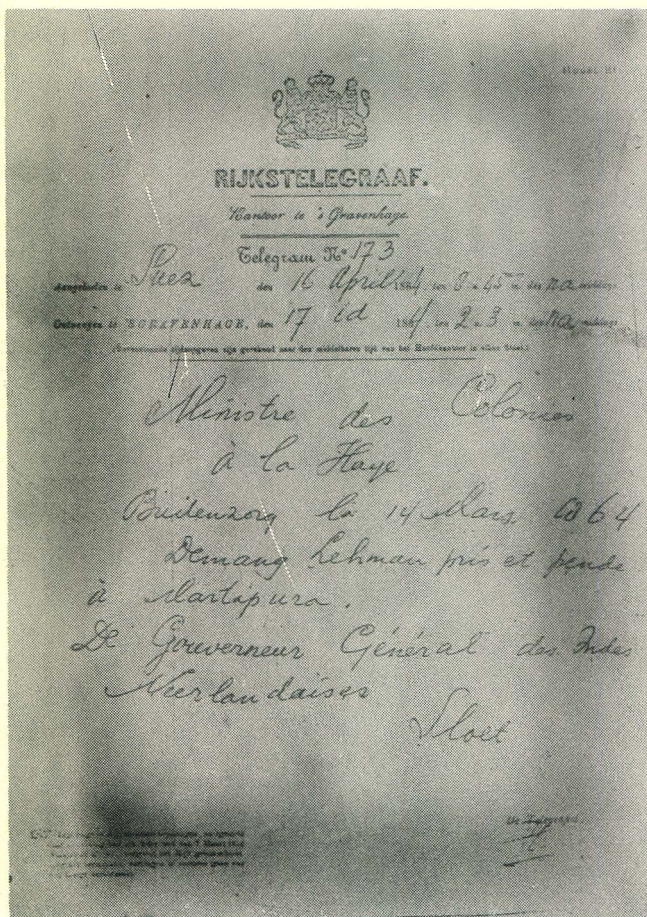 MODEL III
RIJKSTELEGRAAF.
Kantoor te 's Gravenhage.
Telegram No 173
Aangeboden te Suez den 16 April 1864, ten 8 u 45 m. des na middags.
Ontvangen te 'SGRAVENHAGE, den 17 id 1864, ten 2 u 3 m. des na middags.
Ministre des Colonies
à la Haye
Buitenzorg le 14 Mars 1864
Demang Lehman pris et pendu
à Martapura.
De Gouverneur Général des Indes
Neerlandaises
Sloet